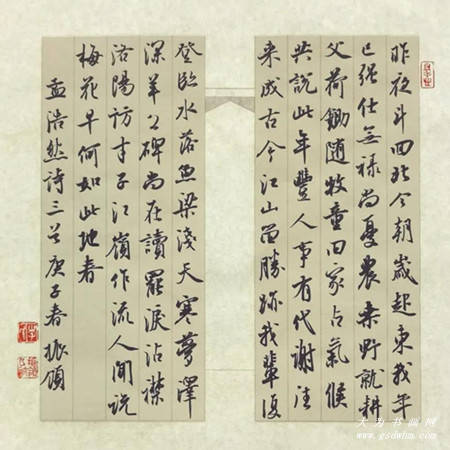 昨夜斗回北今朝歲起東我年
已强仕無禄尚憂農桑野就耕
父荷鋤随牧童田家占氣候
共説此年豐人事有代謝往
来成古今江山留勝跡我輩復
登臨水落魚梁淺天寒夢澤
深羊公碑尚在讀罷淚沾襟
洛陽訪才子江嶺作流人聞説
梅花早何如此地春
孟浩然詩三首庚子春振
书画网
www.gsdwhm.com